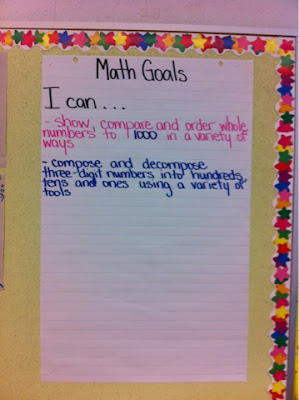 Math Goals
I can...
- show, compare and order whole
numbers to 1000 in a variety of
ways
- compose and decompose
three-digit numbers into hundreds,
tens and ones using a variety of
tools